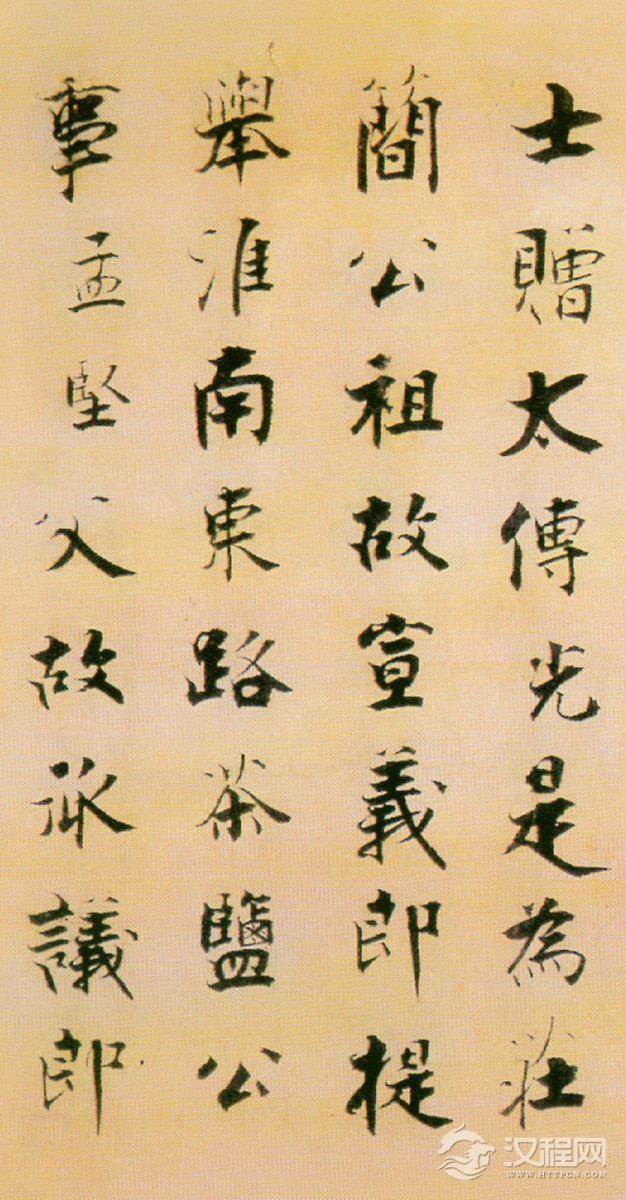 士贈太傅光是為莊
簡公祖故宣義郎提
舉淮南東路茶鹽公
事孟堅父故承議郎
汉程网
WWW.HTTPCN.COM